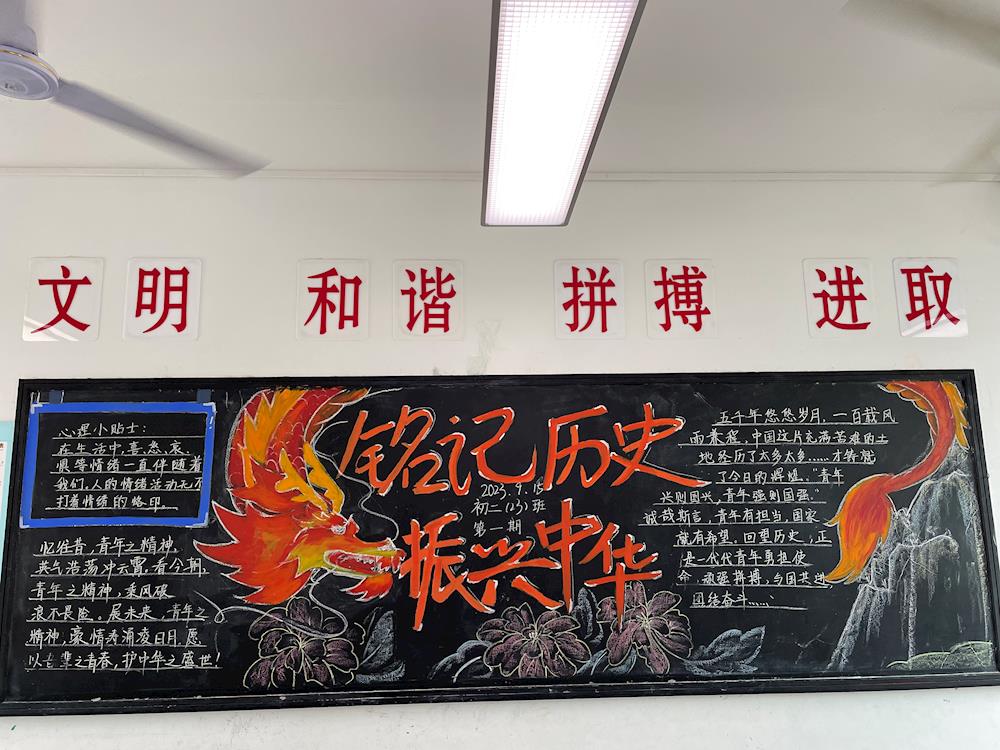 文明 和谐 拼搏 进取
心理小贴士:
在生活中,喜、怒、哀、
惧等情绪一直伴随着
我们,人的情绪活动无不
打着情绪的烙印。
忆往昔,青年之精神,
英气浩荡冲云霄。看今朝,
青年之精神,乘风破
浪不畏险。展未来,青年之
精神,豪情奔涌凌日月。愿
以吾辈之青春,护中华之盛世!
铭记历史
2023.9.15
初二(23)班
第一期
振兴中华
五千年悠悠岁月,一百载风
雨兼程,中国这片充满苦难的土
地经历了太多太多……才铸就
了今日的辉煌。"青年
兴则国兴,青年强则国强。"
诚哉斯言,青年有担当,国家
就有希望。回望历史,正
是一代代青年勇担使
命,顽强拼搏,与国共进,
团结奋斗……